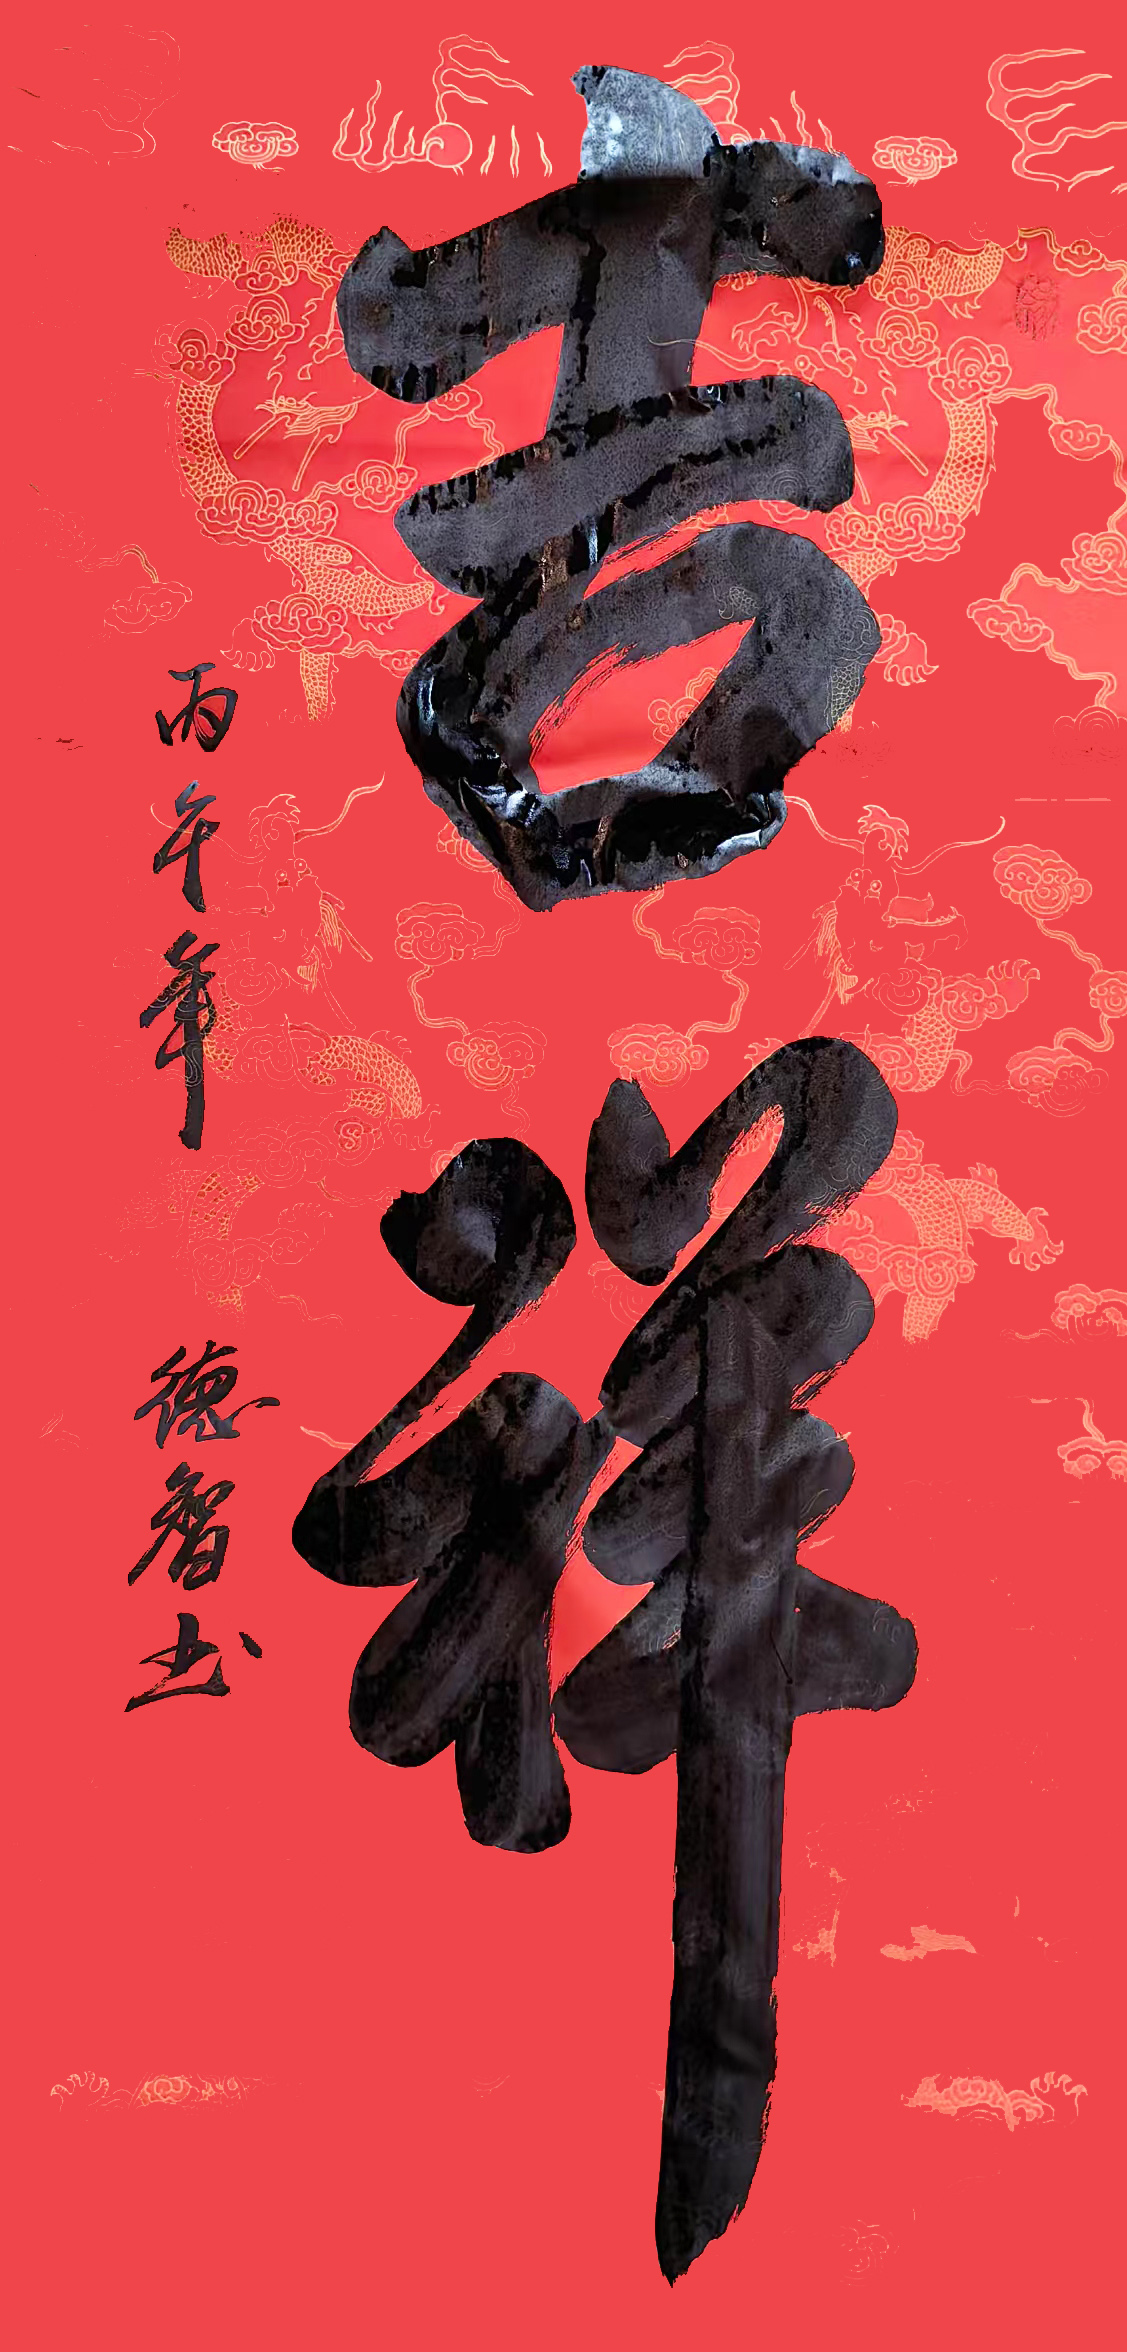 吉祥
丙午年 德智书